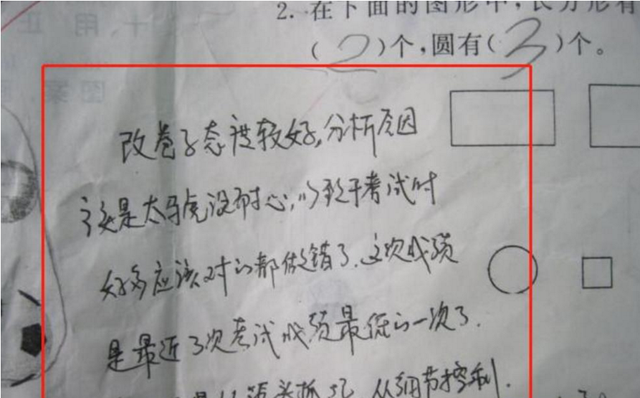 2. 在下面的图形中,长方形有
(2)个,圆有(3)个。
改卷子态度较好,分析原因
还是太马虎没耐心,以致于考试时
好多应该对的都做错了.这次成绩
是最近3次考试成绩最低的一次了.
从细节控制.